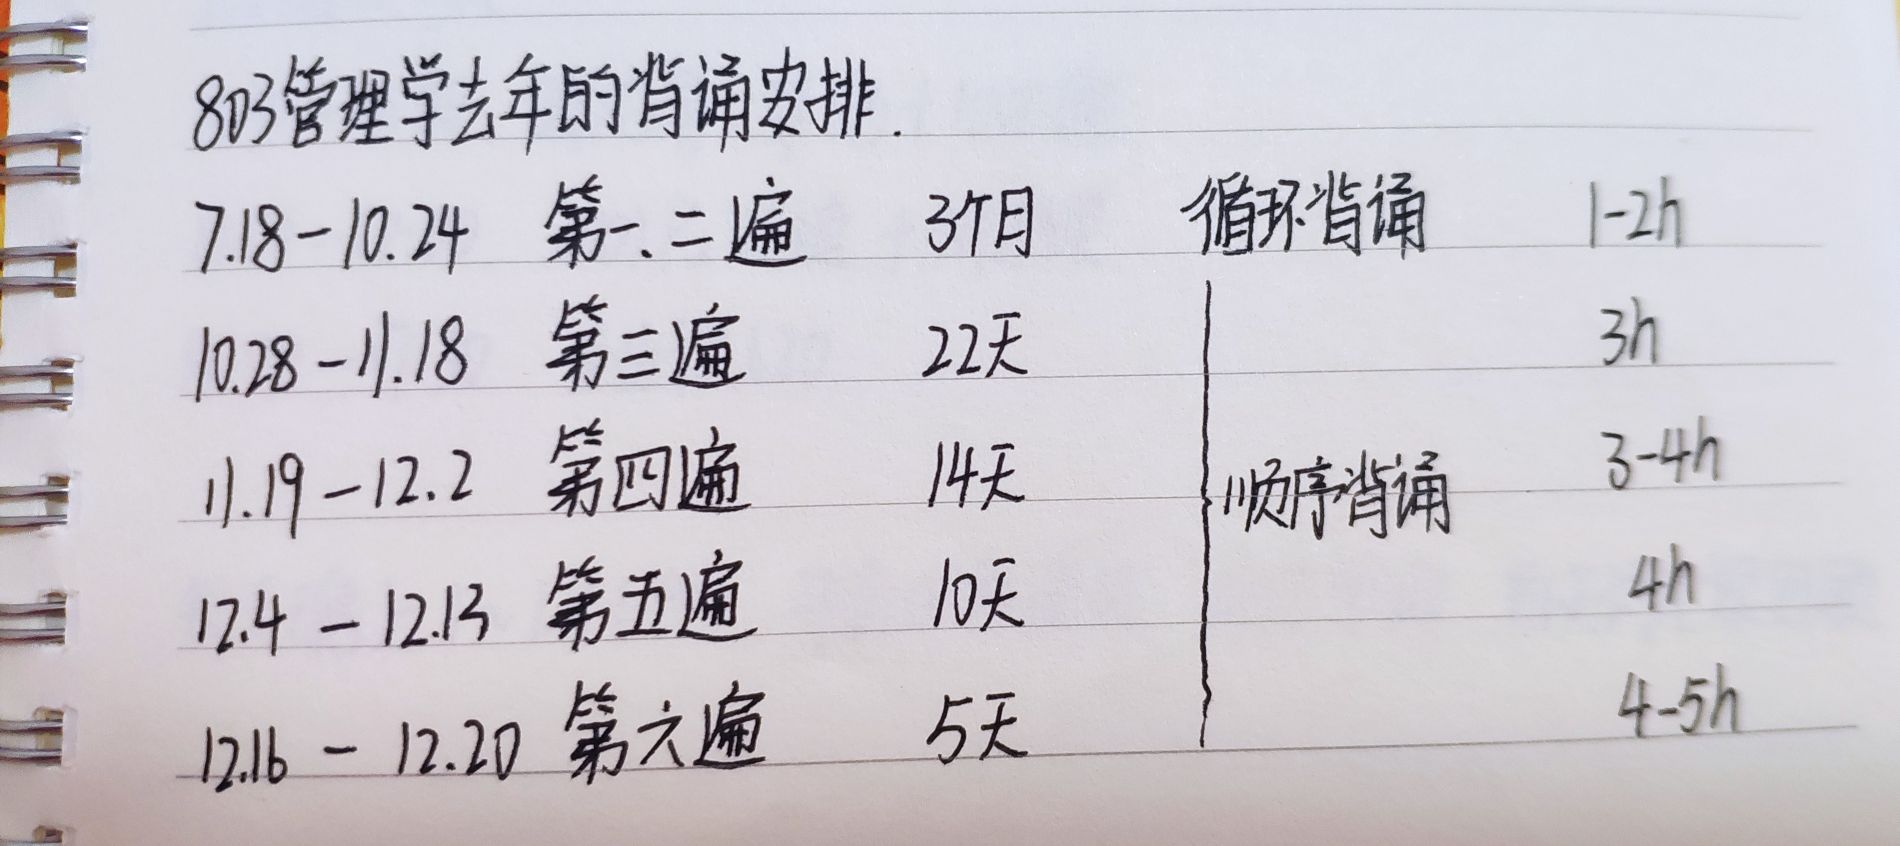 803管理学去年的背诵安排.
7.18-10.24 第一、二遍 3个月 循环背诵 1-2h
10.28-11.18 第三遍 22天 3h
11.19-12.2 第四遍 14天 顺序背诵 3-4h
12.4-12.13 第五遍 10天 4h
12.16-12.20 第六遍 5天 4-5h